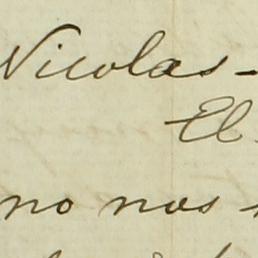 Nicolas-
El
no nos